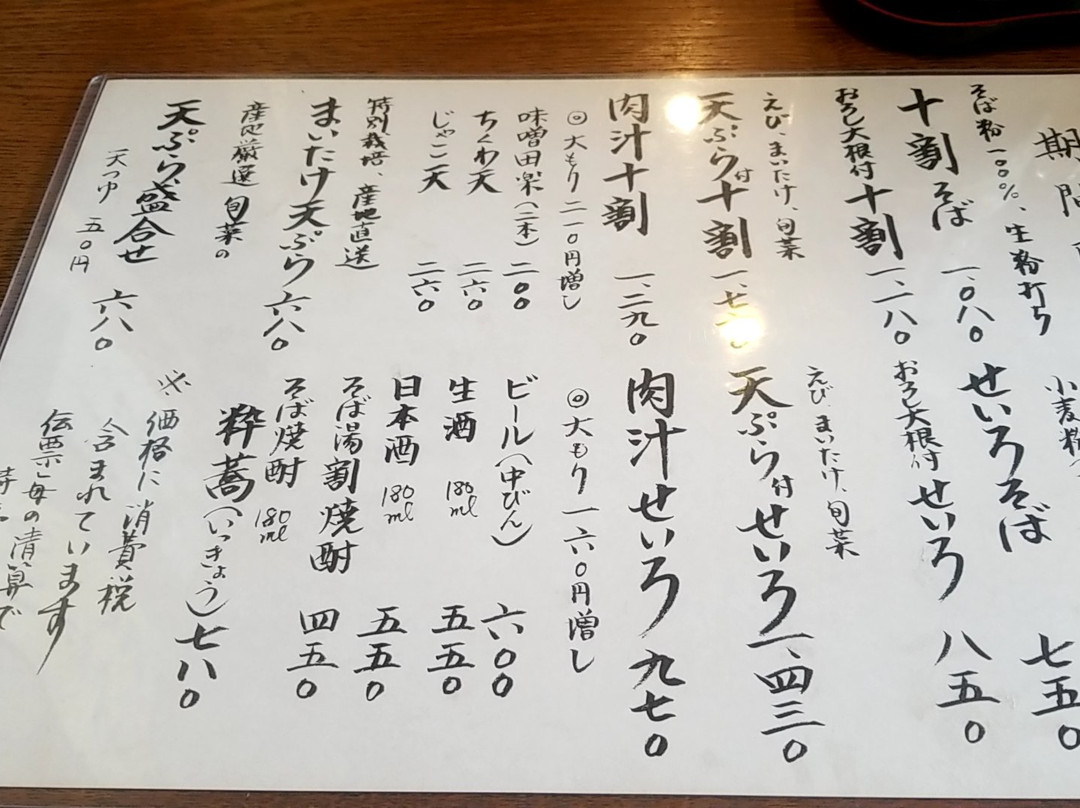 期間
そば粉一〇〇%、生粉打ち
十割そば 一、〇八〇
おろし大根付十割 一、一八〇
えび、まいたけ、旬菜
天ぷら付十割
肉汁十割 一、二九〇
◎大もり二一〇円増し
味噌田楽(二本) 二〇〇
ちくわ天 二六〇
じゃこ天 二六〇
特別栽培、産地直送
まいたけ天ぷら 六八〇
産地厳選 旬菜の
天ぷら盛合せ 六八〇
天つゆ 五〇円
小麦粉
せいろそば 七五〇
おろし大根付せいろ 八五〇
えび まいたけ、旬菜
天ぷら付せいろ 一、四三〇
肉汁せいろ 九七〇
◎大もり一六〇円増し
ビール(中びん) 六〇〇
生酒 180ml 五五〇
日本酒 180ml 五五〇
そば湯割焼酎 四五〇
そば焼酎
粋蕎(いっきょう) 180ml 七八〇
※価格に消費税
含まれています
伝票毎の清算で